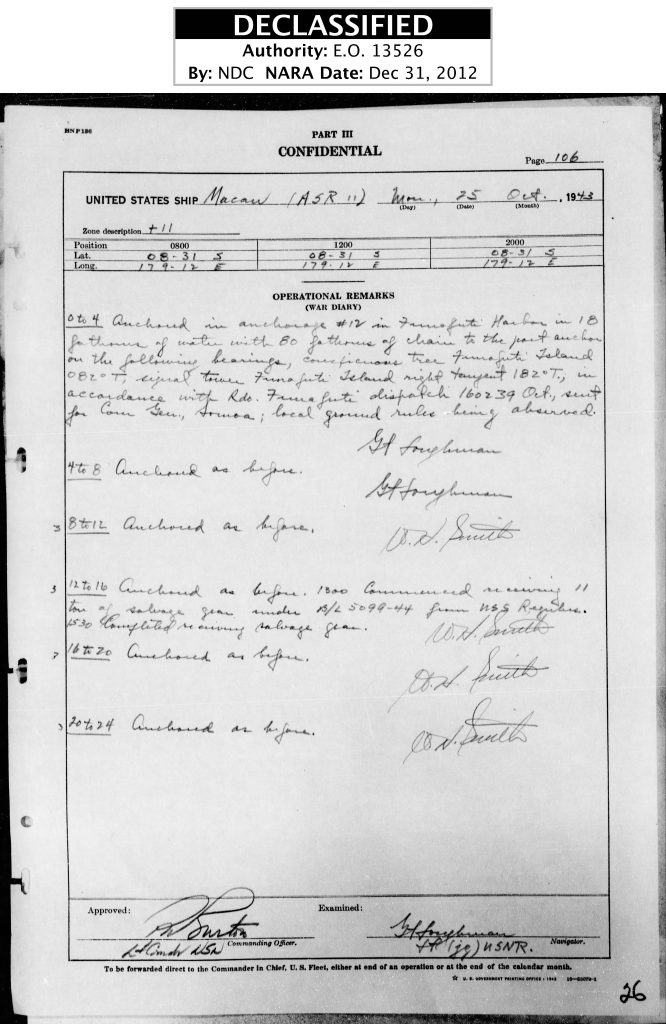 DECLASSIFIED
Authority: E.O. 13526
By: NDC NARA Date: Dec 31, 2012
BNP 136
PART III
CONFIDENTIAL
Page 106
UNITED STATES SHIP Macaw (ASR 11) Mon., 25 Oct. , 1943
(Day) (Date) (Month)
Zone description +11
Position 0800 1200 2000
Lat. 08-31 S 08-31 S 08-31 S
Long. 179-12 E 179-12 E 179-12 E
OPERATIONAL REMARKS
(WAR DIARY)
0 to 4 Anchored in anchorage #12 in Funafuti Harbor in 18
fathoms of water with 80 fathoms of chain to the port anchor
on the following bearings, conspicuous tree Funafuti Island
082°T, signal tower Funafuti Island right tangent 182°T, in
accordance with Rdo. Funafuti dispatch 160239 Oct., sent
for Com Gen., Samoa; local ground rules being observed.
4 to 8 Anchored as before.
3 8 to 12 Anchored as before.
W. H. Smith
3 12 to 16 Anchored as before. 1300 Commenced receiving 11
ton of salvage gear under B/L 5099-44 from USS
1530 Completed receiving salvage gear.
W. H. Smith
16 to 20 Anchored as before.
W. H. Smith
3 20 to 24 Anchored as before.
W. H. Smith
Approved: Examined:
Burton
Lt Comdr USN Commanding Officer. Lt (jg) USNR. Navigator.
To be forwarded direct to the Commander in Chief, U. S. Fleet, either at end of an operation or at the end of the calendar month.
☆ U. S. GOVERNMENT PRINTING OFFICE : 1942
26